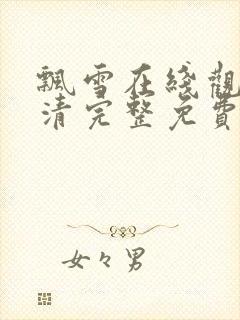 飄雪在綫觀
清完整免費
女々男